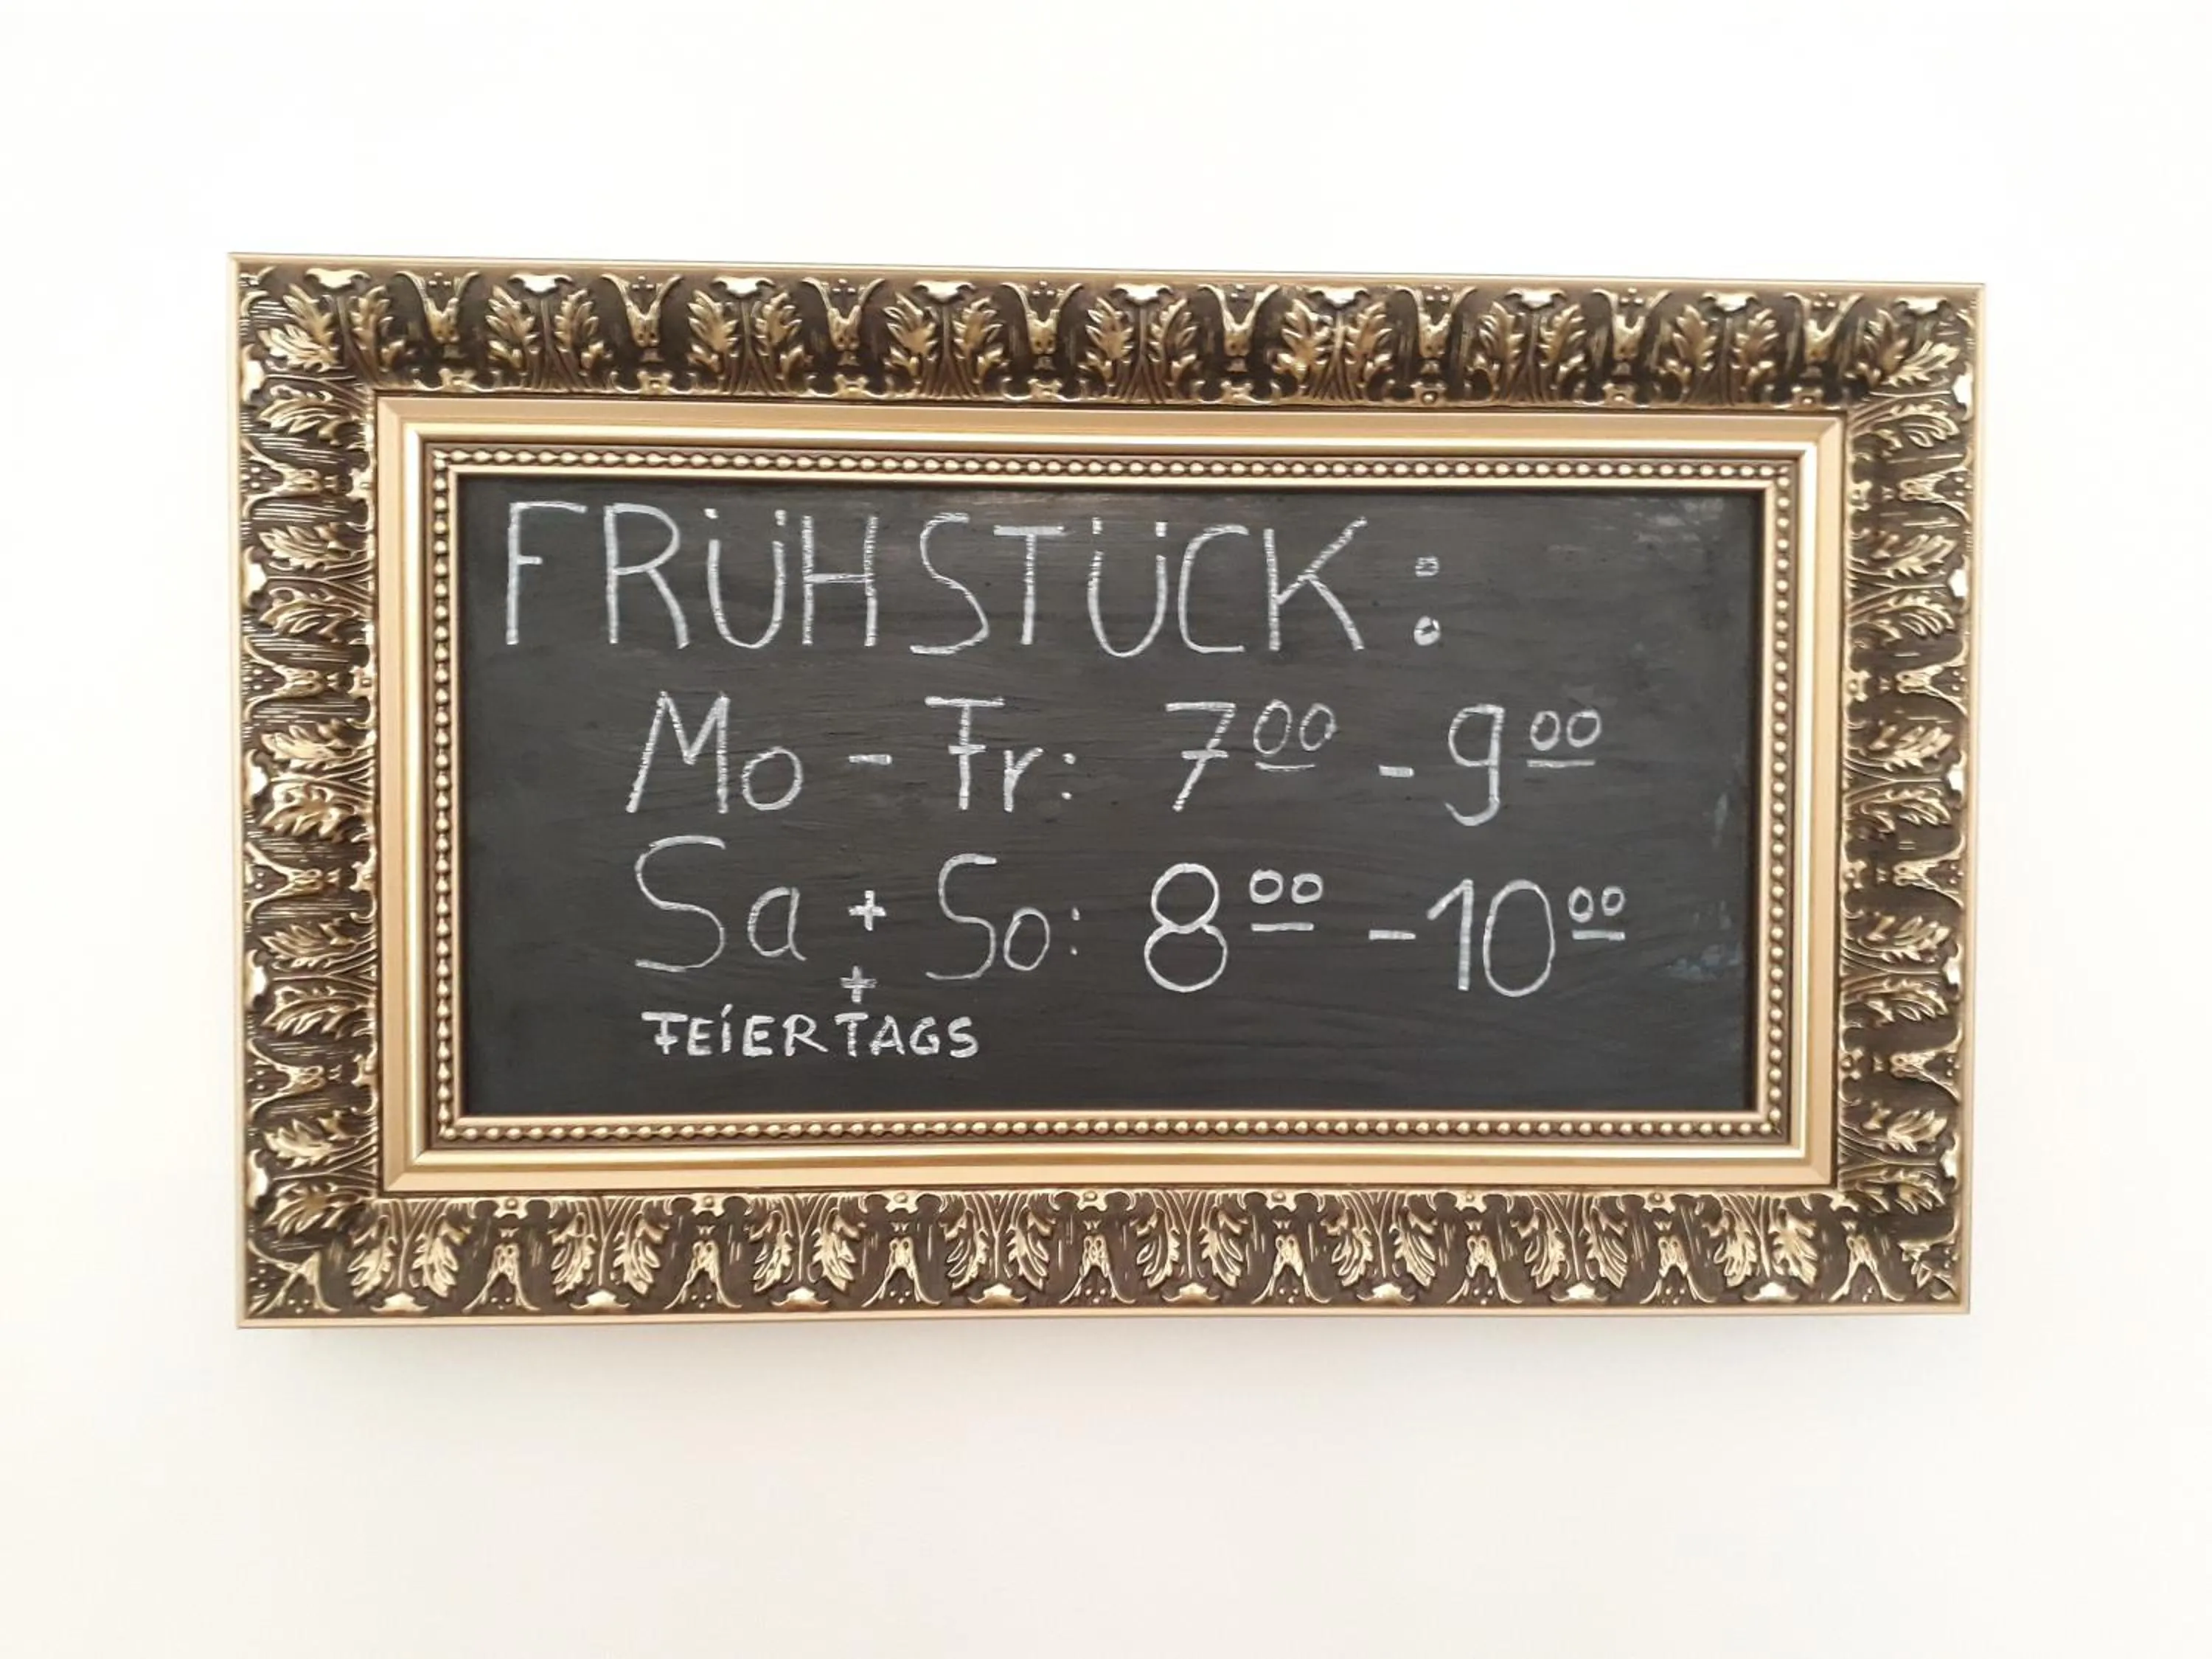 FRÜHSTÜCK:
Mo - Fr: 7⁰⁰ - 9⁰⁰
Sa + So: 8⁰⁰ - 10⁰⁰
+
FEiERTAGS